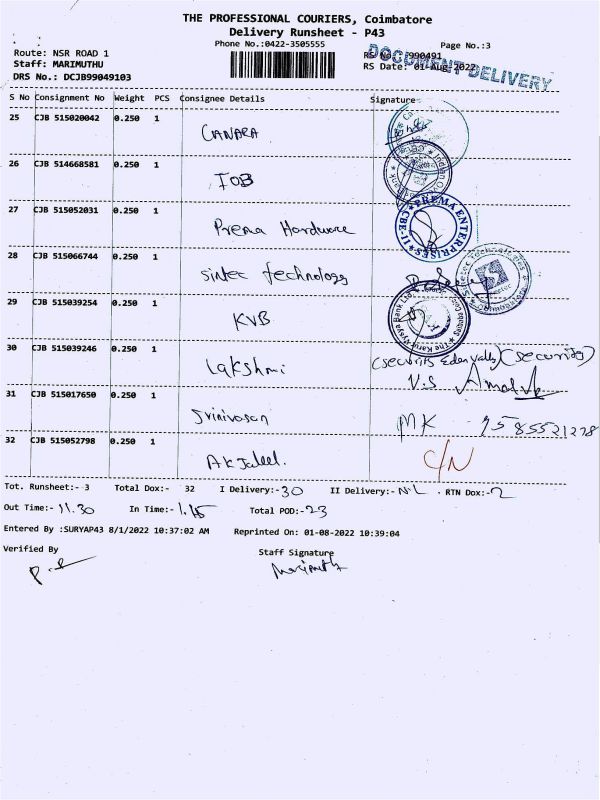 THE PROFESSIONAL COURIERS, Coimbatore
Delivery Runsheet - P43
Phone No.:0422-3505555
Page No.:3
Route: NSR ROAD 1
RS No. :990491
Staff: MARIMUTHU
RS Date: 01-Aug-2022
DOCUMENT DELIVERY
DRS No.: DCJB99049103
S No Consignment No Weight PCS Consignee Details Signature
25 CJB 515020042 0.250 1 CANARA
26 CJB 514668581 0.250 1 IOB
27 CJB 515052031 0.250 1 Prema Hardware
PREMA ENTERPRISES CBE-11
28 CJB 515066744 0.250 1 sintec technology
29 CJB 515039254 0.250 1 KVB
The Karur Vysya Bank Ltd
30 CJB 515039246 0.250 1 Lakshmi (security Edenvally) (security)
V.S
31 CJB 515017650 0.250 1 Srinivasan MK 9585521278
32 CJB 515052798 0.250 1 AK Jaleel. C/N
Tot. Runsheet:- 3 Total Dox:- 32 I Delivery:- 30 II Delivery:- NIL . RTN Dox:- 2
Out Time:- 11.30 In Time:- 1.15 Total POD:- 23
Entered By :SURYAP43 8/1/2022 10:37:02 AM Reprinted On: 01-08-2022 10:39:04
Verified By Staff Signature